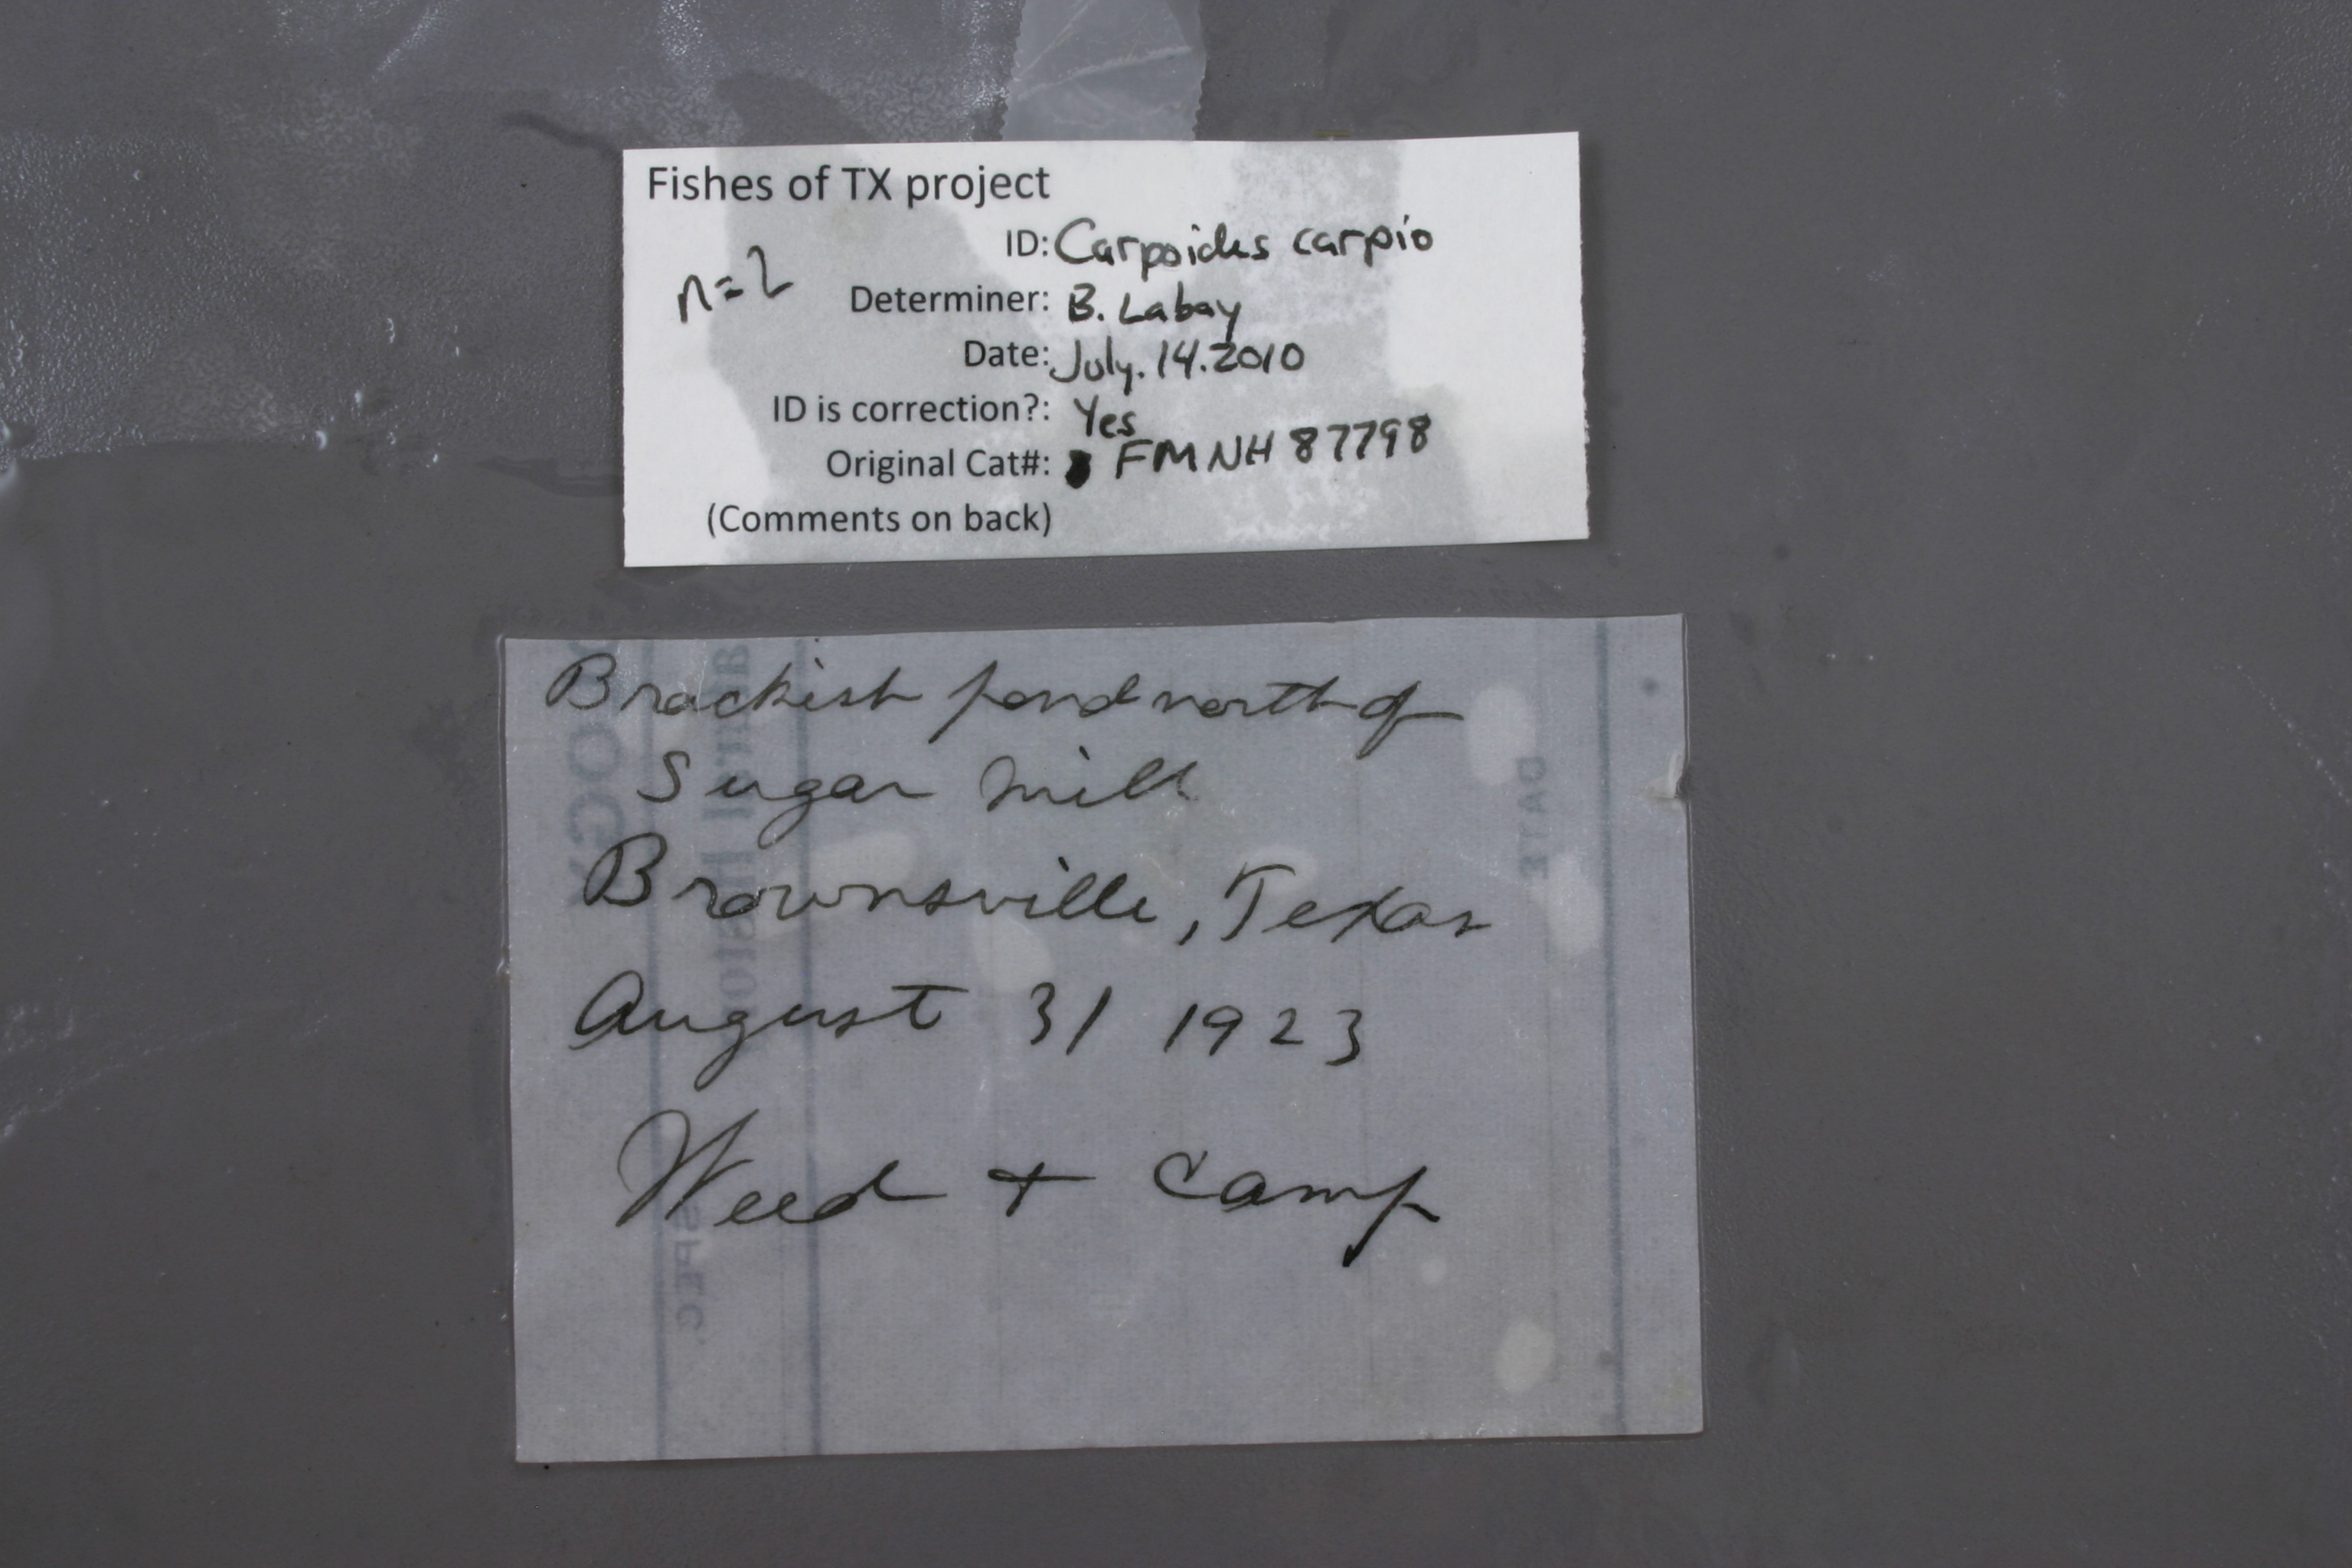 Fishes of TX project
ID: Carpoides carpio
n=2
Determiner: B. Labay
Date: July. 14. 2010
ID is correction?: Yes
Original Cat#: FMNH 87798
(Comments on back)
Brackish pond north of
Sugar Mill
Brownsville, Texas
August 31 1923
Weed + Camp